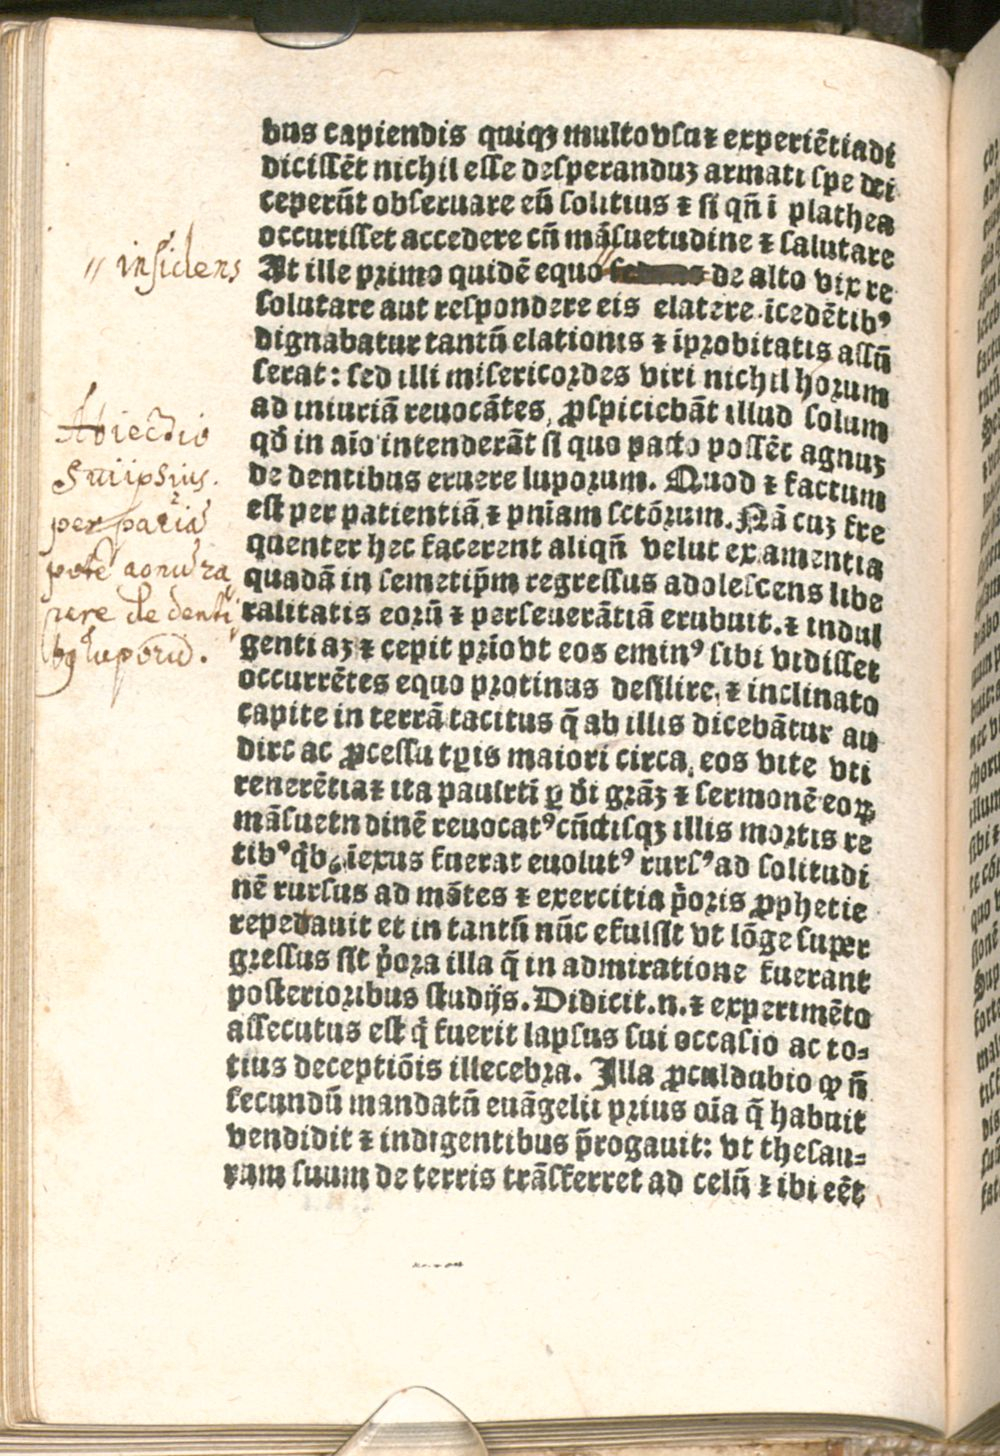 bus capiendis quiqꝫ multo vsu ⁊ experiẽtia di
diciſſẽt nichil eſſe deſperanduꝫ armati ſpe dei
ceperũt obſeruare eũ ſolitius ⁊ ſi qñ ĩ plathea
occuriſſet accedere cũ mãſuetudine ⁊ ſalutare
// inſidens
At ille primo quidẽ equo de alto vix re
ſolutare aut reſpondere eis elatere ĩcedẽtibꝰ
dignabatur tantũ elationis ⁊ ĩprobitatis aſſũ
ſerat: ſed illi miſericordes viri nichil horum
ad iniuriã reuocãtes, ꝓſpiciebãt illud ſolum
qđ in aĩo intenderãt ſi quo pacto poſſẽt agnuꝫ
de dentibus eruere luporum. Quod ⁊ factum
eſt per patientiã ⁊ pniam ſctõrum. Nã cuꝫ fre
quenter hec facerent aliqñ velut ex amentia
quadã in ſemetip̃m regreſſus adoleſcens libe
ralitatis eorũ ⁊ perſeuerãtiã erubuit. ⁊ indul
genti aꝫ ⁊ cepit prĩo vt eos eminꝰ ſibi vidiſſet
occurrẽtes equo protinus deſilire, ⁊ inclinato
capite in terrã tacitus q̃ ab illis dicebãtur au
dire ac ꝓceſſu tꝑis maiori circa, eos vite vti
renerẽtia ⁊ ita paulrti ꝑ di grãꝫ ⁊ ſermonẽ eoꝝ
mãſuetn dinẽ reuocatꝰ cũctiſqꝫ illis mortis re
tibꝰ q̃bꝰ ĩexus fuerat euolutꝰ rurſꝰ ad ſolitudi
nẽ rurſus ad mõtes ⁊ exercitia p̃oris ꝓphetie
repedauit et in tantũ nũc efulſit vt lõge ſuper
greſſus ſit p̃ora illa q̃ in admiratione fuerant
poſterioribus ſtudijs. Didicit .n. ⁊ experimẽto
aſſecutus eſt q̃ fuerit lapſus ſui occaſio ac to⸗
tius deceptiõis illecebra. Illa ꝓculdubio ꝙ ñ
ſecundũ mandatũ euãgelii prius oĩa q̃ habuit
vendidit ⁊ indigentibus p̃rogauit: vt theſau⸗
rum ſuum de terris trãſferret ad celũ ⁊ ibi eẽt
Abiectio
Suiipsius.
per patiã
potẽ agnũ ra
pere de denti
bꝰ luporũ.